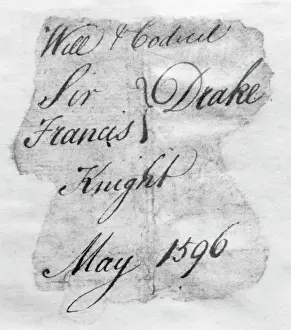 Will & Codicil
Sir } Drake
Francis
Knight
May 1596